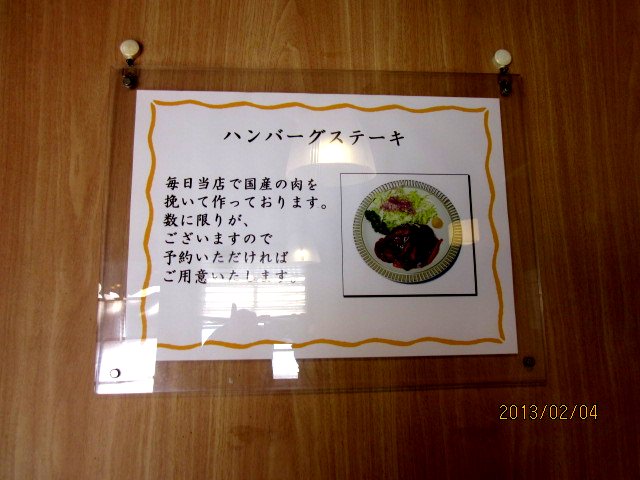 ハンバーグステーキ
毎日当店で国産の肉を
挽いて作っております。
数に限りが、
ございますので
予約いただければ
ご用意いたします。
2013/02/04